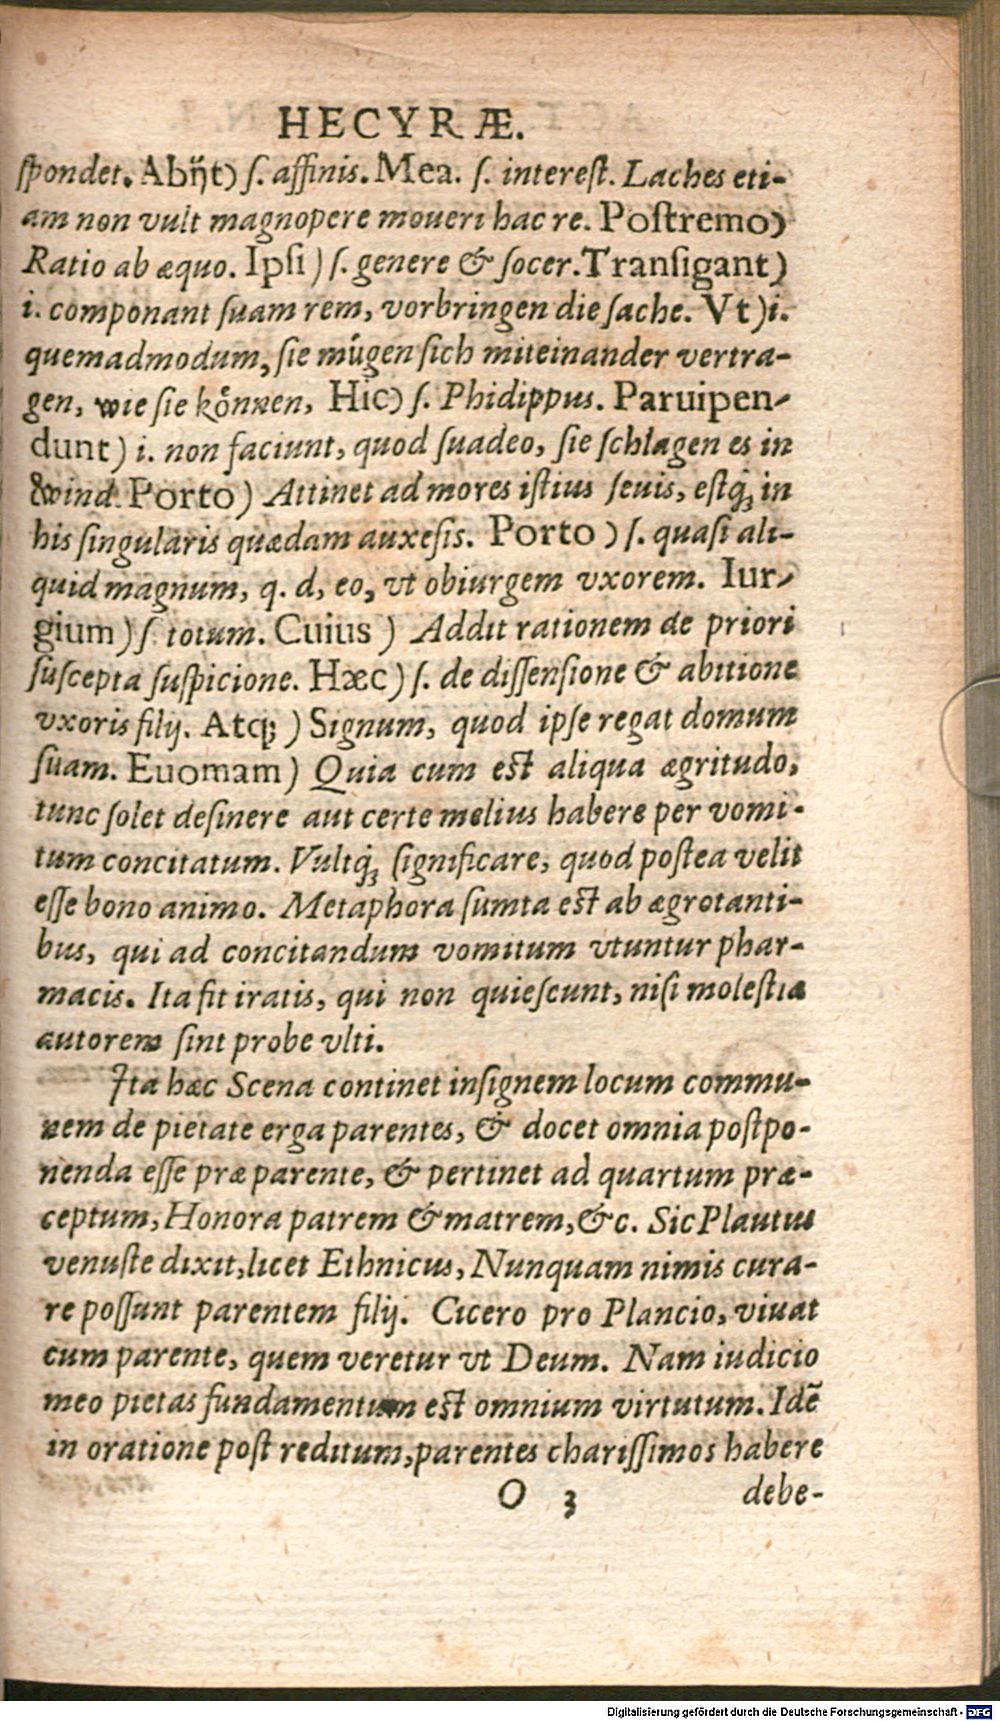 HECYRÆ.
ſpondet. Abijt) ſ. affinis. Mea. ſ. intereſt. Laches eti-
am non vult magnopere moueri hac re. Poſtremo)
Ratio ab æquo. Ipſi) ſ. genere & ſocer. Tranſigant)
i. componant ſuam rem, vorbringen die ſache. Vt) i.
quemadmodum, ſie muͤgen ſich miteinander vertra-
gen, wie ſie koͤnnen, Hic) ſ. Phidippus. Paruipen-
dunt) i. non faciunt, quod ſuadeo, ſie ſchlagen es in
wind. Porto) Attinet ad mores iſtius ſeuis, eſtq́ꝫ in
his ſingularis quædam auxeſis. Porto) ſ. quaſi ali-
quid magnum, q. d, eo, vt obiurgem vxorem. Iur-
gium) ſ. totum. Cuius) Addit rationem de priori
ſuſcepta ſuſpicione. Hæc) ſ. de diſſenſione & abitione
vxoris filij. Atqꝫ) Signum, quod ipſe regat domum
ſuam. Euomam) Quia cum eſt aliqua ægritudo,
tunc ſolet deſinere aut certe melius habere per vomi-
tum concitatum. Vultq́ꝫ ſignificare, quod poſtea velit
eſſe bono animo. Metaphora ſumta eſt ab ægrotanti-
bus, qui ad concitandum vomitum vtuntur phar-
macis. Ita fit iratis, qui non quieſcunt, niſi moleſtia
autorem ſint probe vlti.
Ita hæc Scena continet inſignem locum commu-
nem de pietate erga parentes, & docet omnia poſtpo-
nenda eſſe præ parente, & pertinet ad quartum præ-
ceptum, Honora patrem & matrem, &c. Sic Plautus
venuſte dixit, licet Ethnicus, Nunquam nimis cura-
re poſſunt parentem filij. Cicero pro Plancio, viuat
cum parente, quem veretur vt Deum. Nam iudicio
meo pietas fundamentum eſt omnium virtutum. Idē
in oratione poſt reditum, parentes chariſſimos habere
O 3 debe-
Digitalisierung gefördert durch die Deutsche Forschungsgemeinschaft - DFG